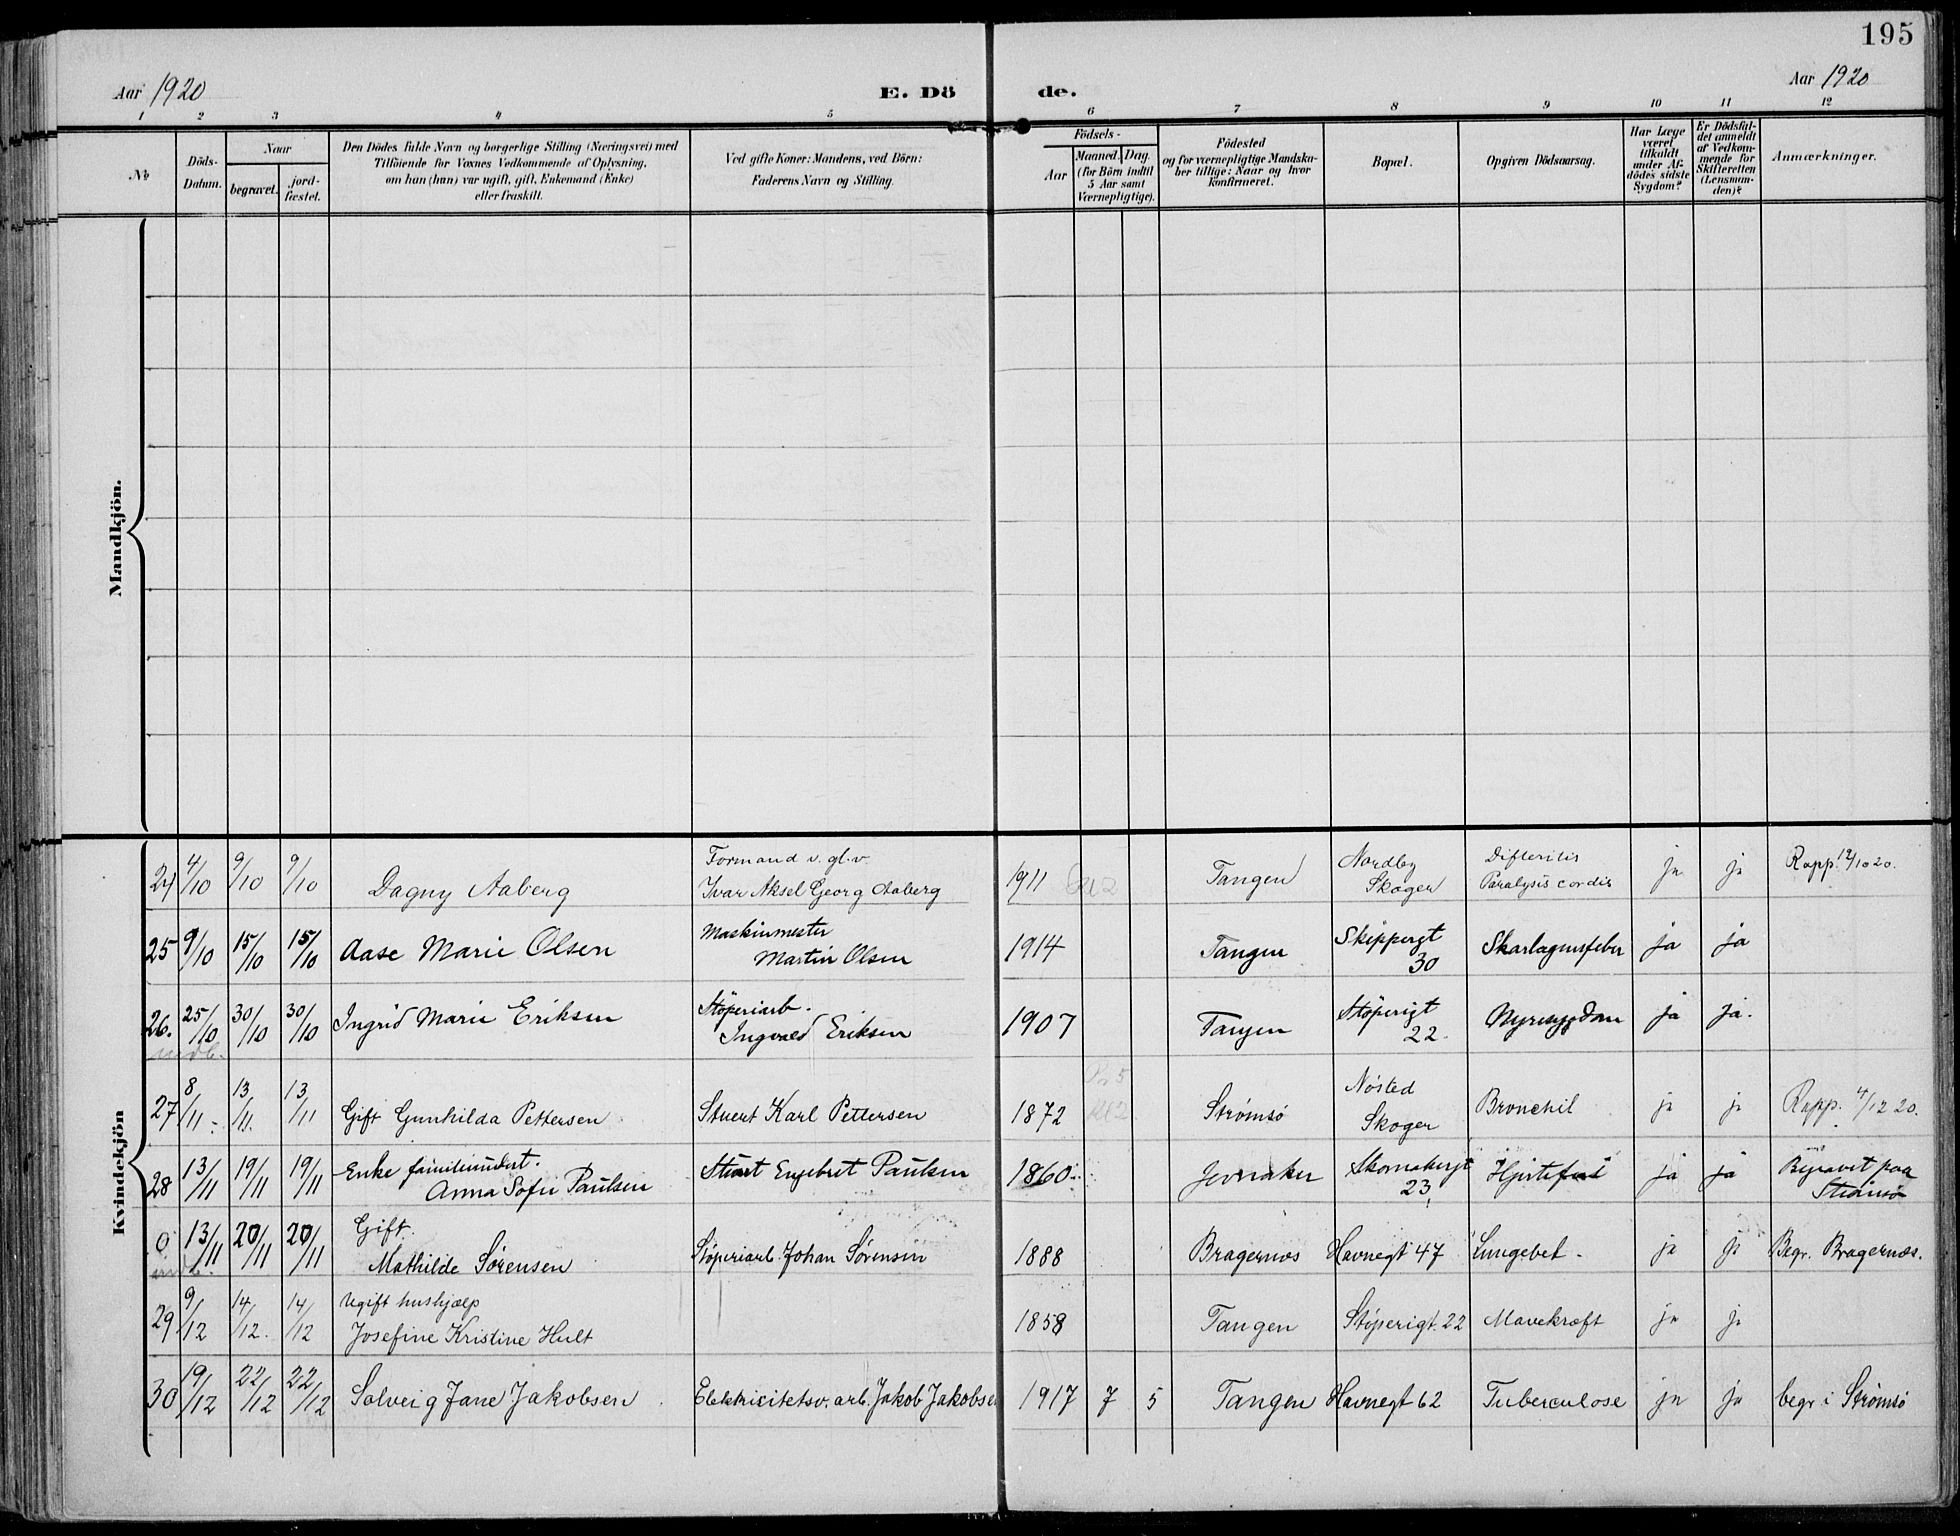 195
Aar 1920
E. Dö
de.
Aar 1920
1 2 3 4 5 6 7 8 9 10 11 12
No
Döds-
Datum.
Naar
begravet.
jord-
fæstet.
Den Dödes fulde Navn og borgerlige Stilling (Næringsvei) med
Tilföiende for Voxnes Vedkommende af Oplysning,
om han (hun) var ugift, gift, Enkemand (Enke)
eller fraskilt.
Ved gifte Koner: Mandens, ved Börn:
Faderens Navn og Stilling.
Födsels-
Aar
Maaned. Dag.
(for Börn indtil
5 Aar samt
Værnepligtige).
Födested
og for værnepligtige Mandska-
ber tillige: Naar og hvor
konfirmeret.
Bopæl.
Opgiven Dödsaarsag.
Har Læge
været
tilkaldt
under Af-
dödes sidste
Sygdom?
Er Dödsfal-
det anmeldt
af Vedkom-
mende for
Skifteretten
(Lensman-
den)?
Anmærkninger.
Mandkjön.
Kvindekjön
24 4/10 9/10 9/10 Dagny Aaberg
Formand v. gl.v.
Ivar Aksel Georg Aaberg
1911 Tangen
Nordby
Skoger
Difteritis
Paralysis cordis
ja ja Rapp. 12/10 20.
25 9/10 15/10 15/10 Aase Marie Olsen
Maskinmester
Martin Olsen
1914 Tangen
Skippergt
30
Skarlagensfeber ja ja
26. 25/10 30/10 30/10 Ingrid Marie Eriksen
Støperiarb.
Ingvald Eriksen
1907 Tangen
Støperigt
22.
Nyresygdom ja ja.
indb.
27 8/11 13/11 13/11 Gift Gunhilda Pettersen
Stuert Karl Pettersen
1872 Strømsö
Nøsted
Skoger
Bronchit ja ja Rapp. 4/12 20.
28 13/11 19/11 19/11 Enke
Anna Sofie Paulsen
Stuart Engebret Paulsen
1860 Jevnaker
23
ja ja
Begravet paa
Strømsø
0 13/11 20/11 20/11 Gift
Mathilde Sørensen
Støperiarb. Johan Sørensen
1888 Bragernes Havnegt 47 Lungebet. ja ja Begr. Bragernæs.
indb.
29 9/12 14/12. 14/12 Ugift hushjælp
Josefine Kristine Hult
1858 Tangen Støperigt. 22 Mavekræft ja ja
30 19/12 22/12 22/12 Solveig Jane Jakobsen
Elektricitetsv. arb. Jakob Jakobsen
1917 7 5 Tangen Havnegt 62 Tuberculose ja ja begr i Strømsö